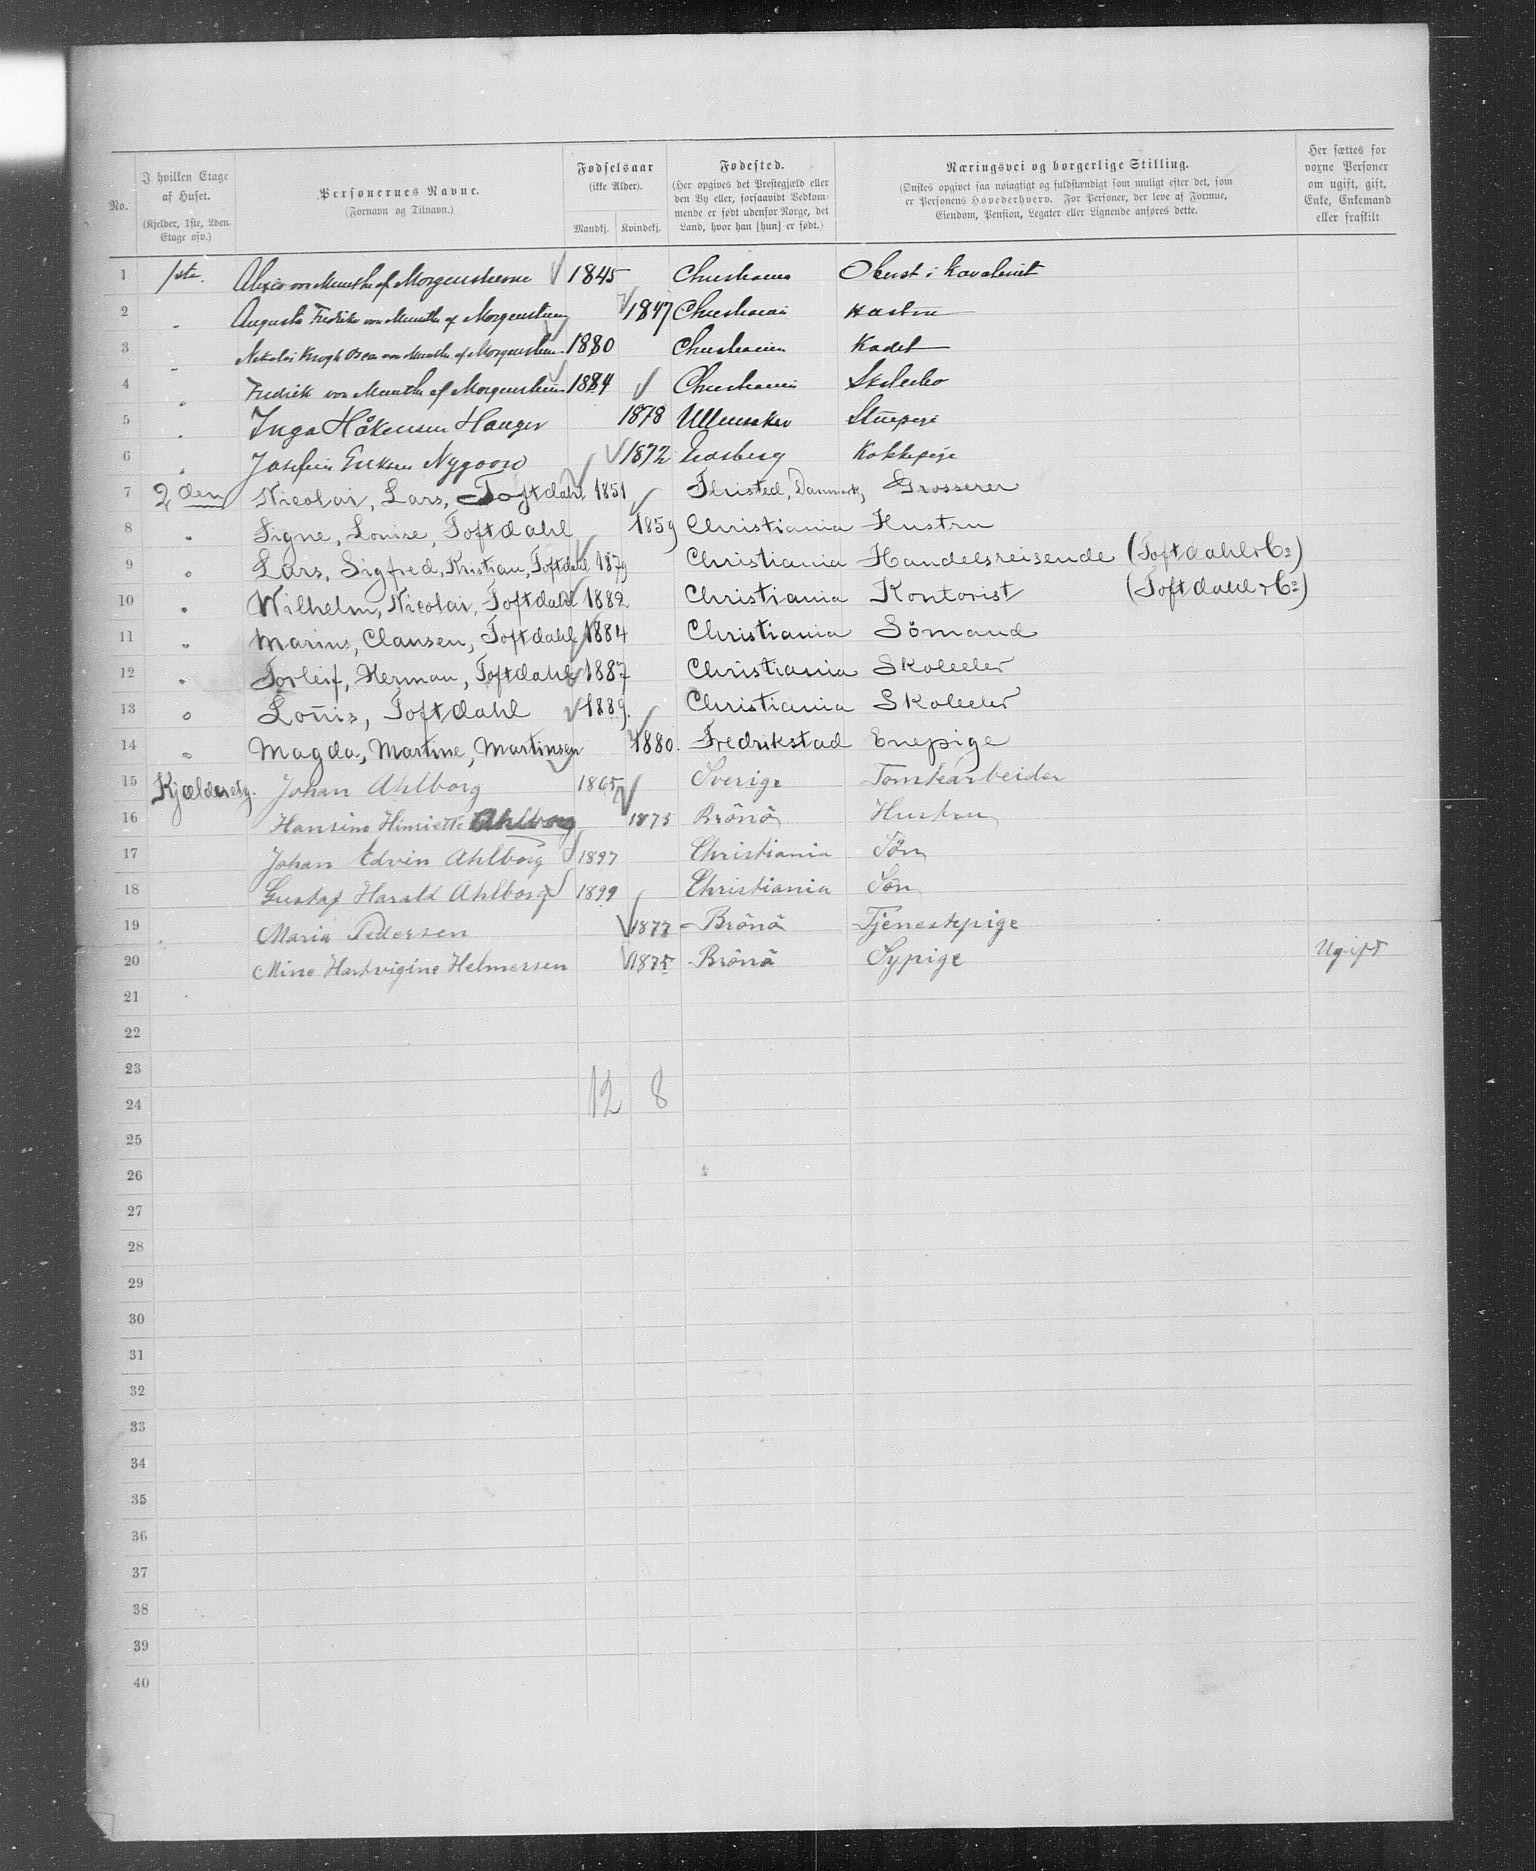 No.
I hvilken Etage af Huset.
(Kjelder, 1ste, 2den Etage osv.)
Personernes Navne.
(Fornavn og Tilnavn.)
Fødselsaar
(ikke Alder).
Mandkj. Kvindekj.
Fødested.
(Her opgives det Prestegjæld eller
den By eller, forsaavidt Vedkom-
mende er født udenfor Norge, det
Land, hvor han [hun] er født.)
Næringsvei og borgerlige Stilling.
(Ønskes opgivet saa nøiagtigt og fuldstændigt som muligt efter det, som
er Personens Hovederhverv. For Personer, der leve af Formue,
Eiendom, Pension, Legater eller Lignende anføres dette.
Her sættes for
voxne Personer
om ugift, gift,
Enke, Enkemand
eller fraskilt
1 1ste. von Munthe af Morgenstierne 1845 Christiania Oberst i Kavaleriet
2 " Augusta Fredrikke von Munthe af Morgenstierne 1847 Christiania Hustru
3 " Nikolai Krogh von Munthe af Morgenstierne 1880 Christiania Kadet
4 " Fredrik von Munthe af Morgenstierne 1884 Christiania
5 " Inga Håkensen Hauger 1878 Ullensaker Stuepige
6 " Josefine Eriksen Nygaard 1872 Kokkepige
7 2den Nicolai, Lars, Toftdahl 1851 Thisted, Danmark, Grosserer
8 " Signe, Louise, Toftdahl 1859 Christiania Hustru
9 " Lars, Sigfred, Kristian, Toftdahl 1879 Christiania Handelsreisende (Toftdahl & Co:)
10 " Wilhelm, Nicolai, Toftdahl 1882 Christiania Kontorist (Toftdahl & Co:)
11 " Marius, Clausen, Toftdahl 1884 Christiania Sömand
12 " Torleif, Herman, Toftdahl 1887 Christiania Skoleelev
13 " Louis, Toftdahl 1889. Christiania Skoleelev
14 " Magda, Martine, Martinsen 1880. Fredrikstad Enepige
15 Kjælderetg. Johan Ahlborg 1865 Sverige Tomtearbeider
16 Hansine Henriette Ahlborg 1875 Brönö Hustru
17 Johan Edvin Ahlborg 1897 Christiania Sön
18 Gustaf Harald Ahlborg 1899 Christiania Sön
19 Maria Pedersen 1877 Brönö Tjenestepige
20 Mine Hartvigine Helmersen 1875 Brönö Sypige Ugift
21
22
23
12 8
24
25
26
27
28
29
30
31
32
33
34
35
36
37
38
39
40